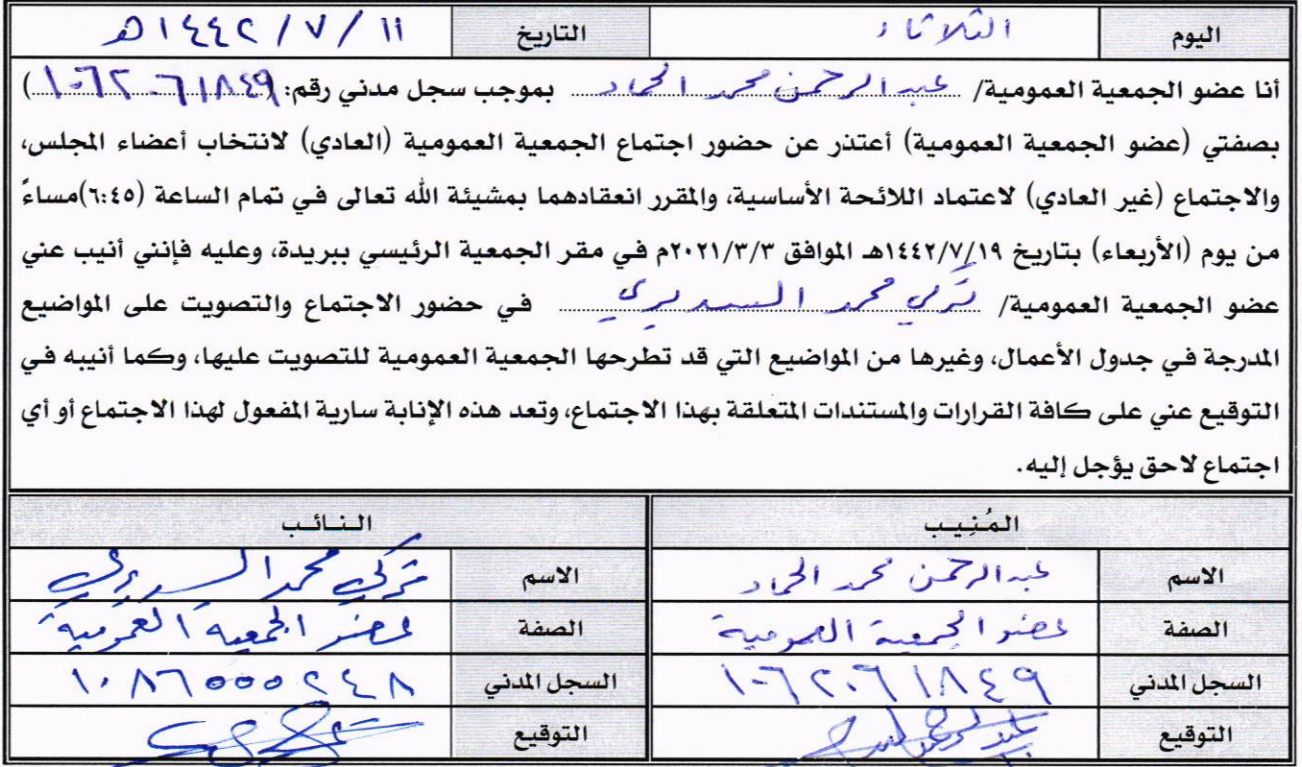 اليوم الثلاثاء التاريخ ١١ / ٧ / ١٤٤٢هـ
أنا عضو الجمعية العمومية/ عبدالرحمن محمد الحماد بموجب سجل مدني رقم: (١٠٦٢٠٦١٨٤٩)
بصفتي (عضو الجمعية العمومية) أعتذر عن حضور اجتماع الجمعية العمومية (العادي) لانتخاب أعضاء المجلس،
والاجتماع (غير العادي) لاعتماد اللائحة الأساسية، والمقرر انعقادهما بمشيئة الله تعالى في تمام الساعة (٦:٤٥)مساءً
من يوم (الأربعاء) بتاريخ ١٤٤٢/٧/١٩هـ الموافق ٢٠٢١/٣/٣م في مقر الجمعية الرئيسي ببريدة، وعليه فإنني أنيب عني
عضو الجمعية العمومية/ تركي محمد السديري في حضور الاجتماع والتصويت على المواضيع
المدرجة في جدول الأعمال، وغيرها من المواضيع التي قد تطرحها الجمعية العمومية للتصويت عليها، وكما أنيبه في
التوقيع عني على كافة القرارات والمستندات المتعلقة بهذا الاجتماع، وتعد هذه الإنابة سارية المفعول لهذا الاجتماع أو أي
اجتماع لاحق يؤجل إليه.
المُنِيب النائب
الاسم عبدالرحمن محمد الحماد الاسم تركي محمد السديري
الصفة عضو الجمعية العمومية الصفة عضو الجمعية العمومية
السجل المدني ١٠٦٢٠٦١٨٤٩ السجل المدني ١٠٨٦٥٥٥٢٤٨
التوقيع التوقيع